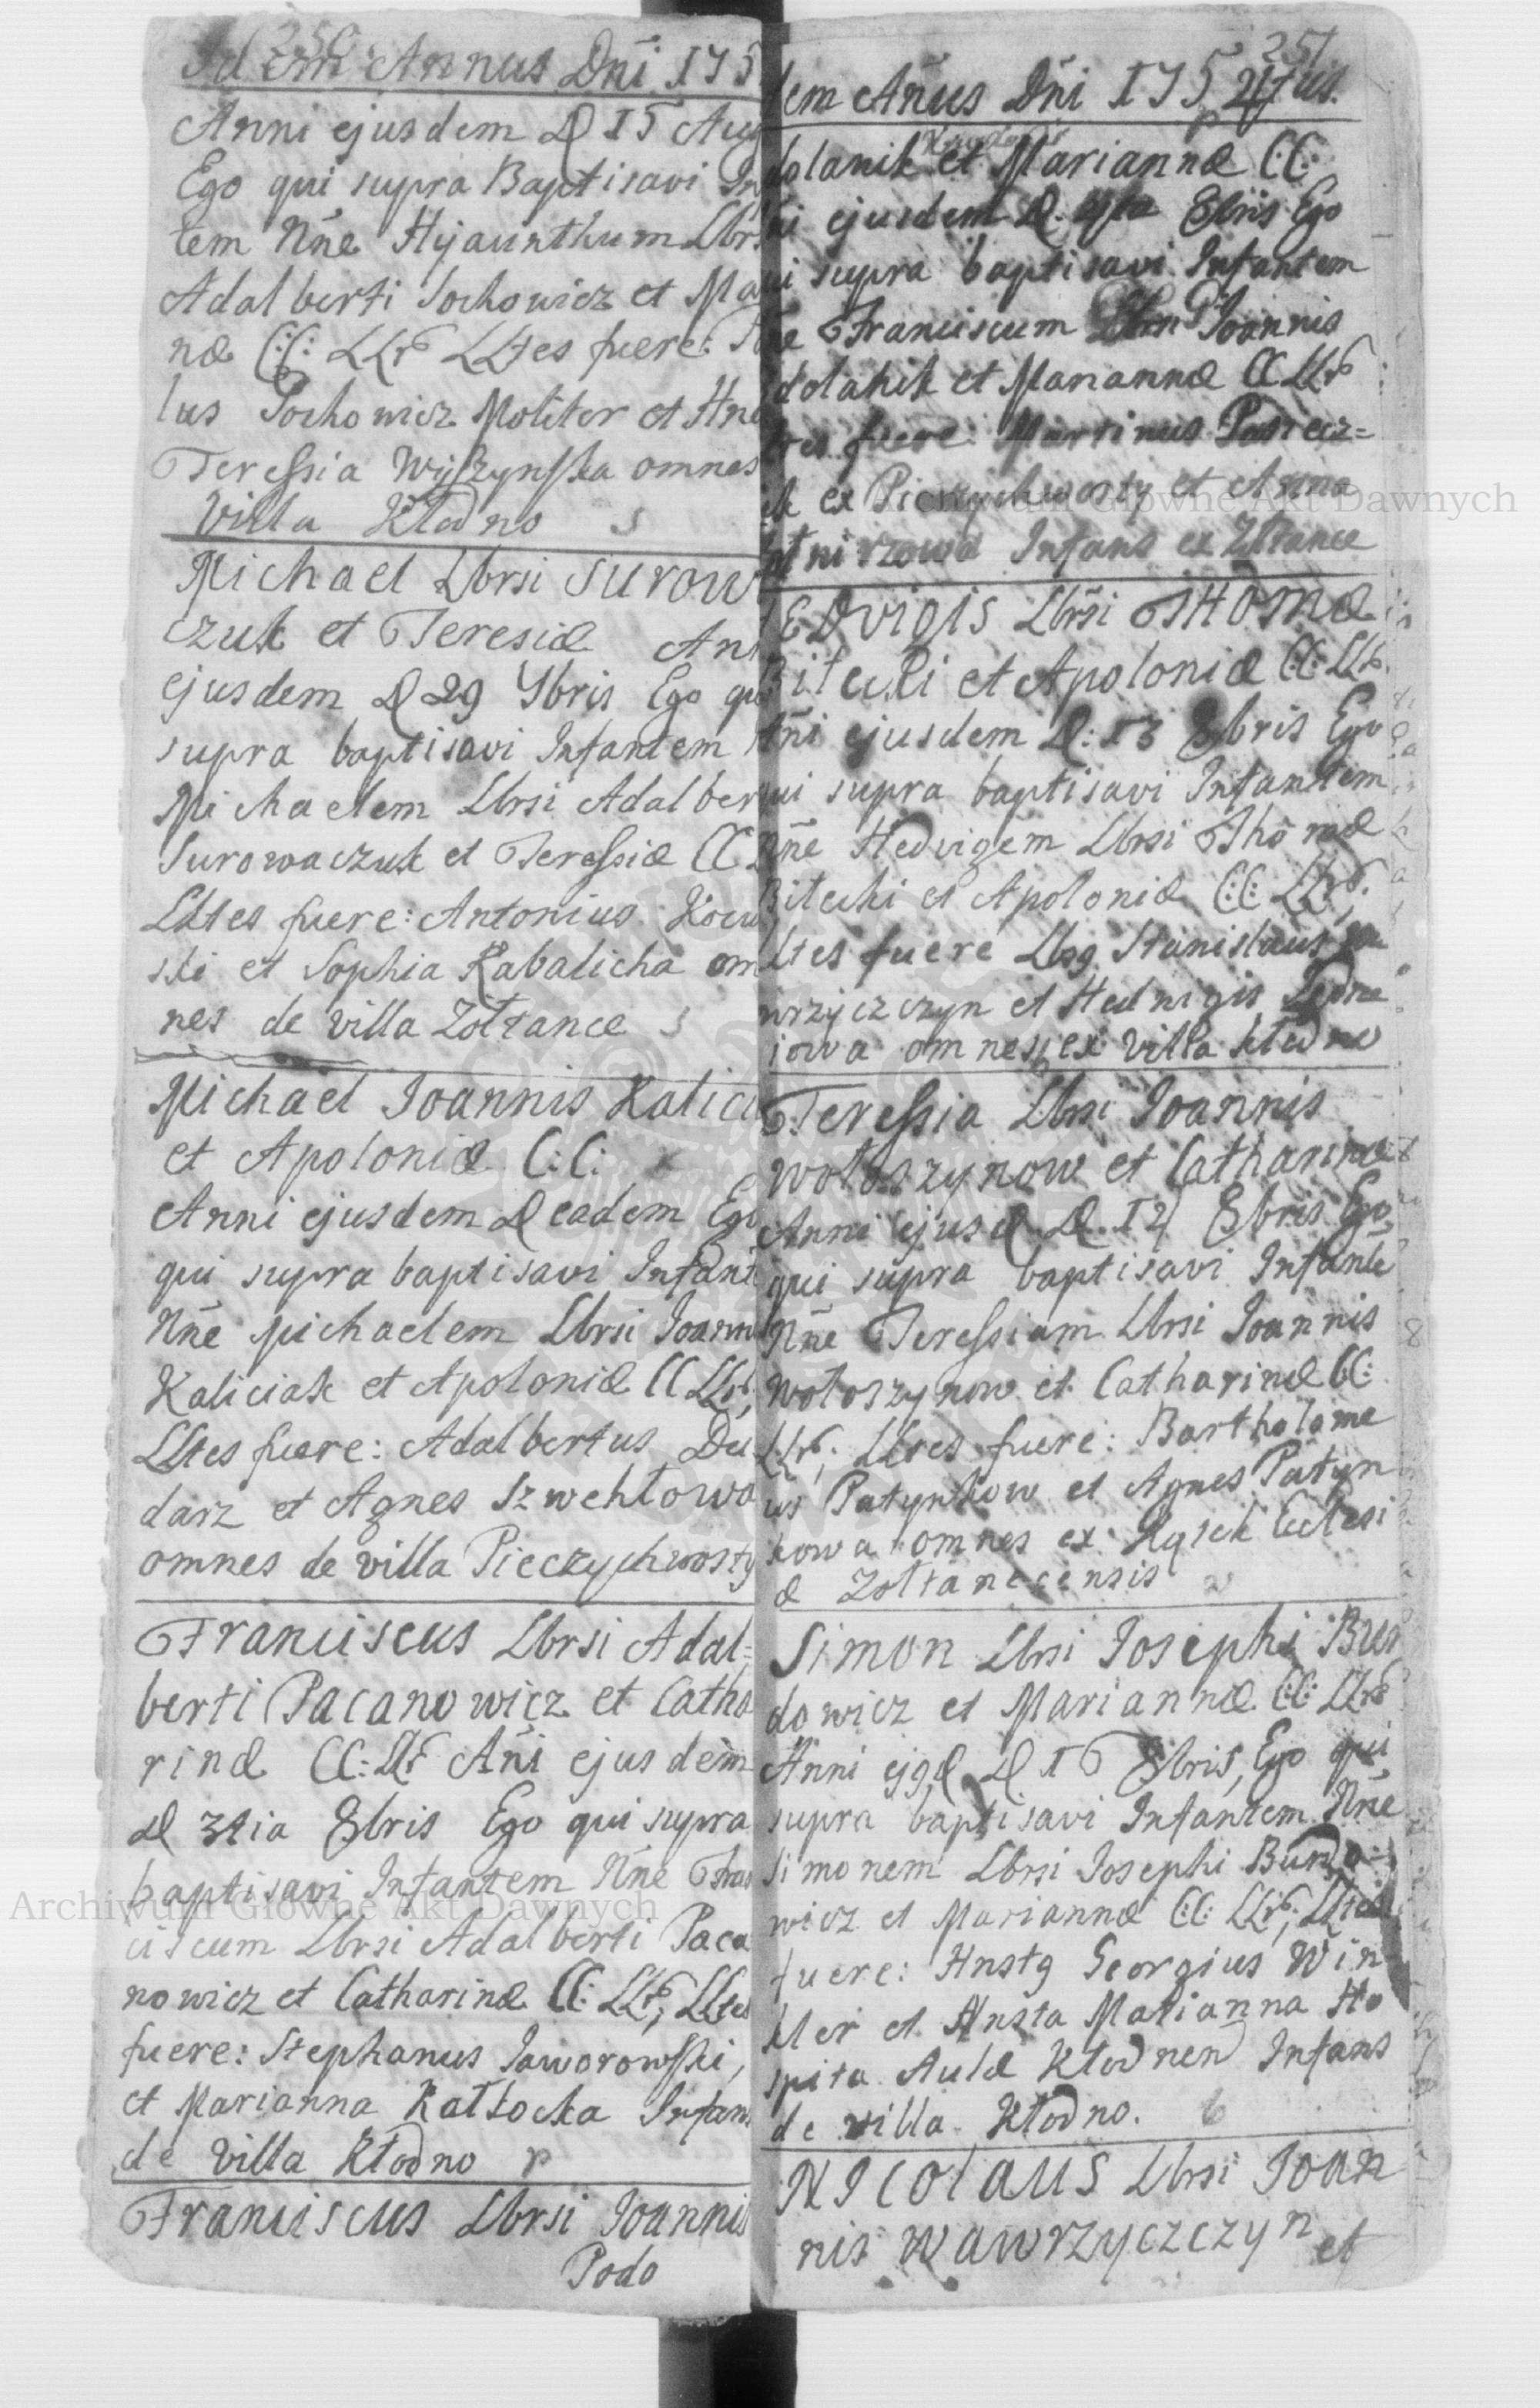 250
Idem Annus Dñi 175
Anni ejusdem D 15 Aug
Ego qui supra Baptisavi In
tem Nñe Hyacinthum Lbrs
Adalberti Sochowicz et Ma
næ CC: LLr LLtes fuere:
lus Sochowicz Molitor et Hne
Teressia Wyszynska omnes
Villa Kłodno
Michael Lbrsi Surow
czuk et Teresiæ An
ejusdem D 29 7bris Ego qu
supra baptisavi Infantem
Michaelem Lbrsi Adalber
Surowaczuk et Teressiæ CC
LLtes fuere: Antonius Kocu
ski et Sophia Kabalicha om
nes de villa Zołtance
Michael Ioannis Kalici
et Apoloniæ C:C:
Anni ejusdem D eadem Ego
qui supra baptisavi Infant
Nñe Michaelem Lbrsi Ioanni
Kaliciak et Apoloniæ CC LLr
LLtes fuere: Adalbertus Du
darz et Agnes Szwehłowa
omnes de villa Pieczychwosty
Franciscus Lbrsi Adal=
berti Pacanowicz et Catha
rinæ CC: LLr Añi ejusdem
D 3tia 8bris Ego qui supra
baptisavi Infantem Nñe Fran
ciscum Lbrsi Adalberti Paca
nowicz et Catharinæ CC: LLr, LLtes
fuere: Stephanus Jaworowski,
et Marianna Kałłocka Infans
de villa Kłodno
Franciscus Lbrsi Ioannis
Podo
251
dem Añus Dñi 175
dolanik et Mariannæ CC:
ejusdem D. 8bris Ego
ui supra baptisavi Infantem
ñe Franciscum Ioannis
dolanik et Mariannæ CC LLr
tes fuere Martinus Pasiecz=
ik ex Pieczychwosty et Anna
Infans ex Zołtance
Edvigis Lbrsi Thomæ
Bitecki et Apoloniæ CC: LLr.
Añi ejusdem D: 13 8bris Ego
qui supra baptisavi Infantem
Nñe Hedvigem Lbrsi Thomæ
Bitecki et Apoloniæ CC: LLr,
LLtes fuere Stanislaus Wa
wrzyczczyn et Hedwigis
iowa omnes ex villa Kłodno
Teressia Lbrsi Ioannis
Wołoszynow et Catharinæ
Anni ejusd D. 14 8bris Ego
qui supra baptisavi Infantē
Nñe Teressiam Lbrsi Ioannis
Wołoszynow et Catharinæ CC:
LLr, LLtes fuere: Bartholome
us Patynkow et Agnes Patyn
kowa omnes ex Ecclesi
æ Zołtanecensis
Simon Lbrsi Iosephi Bur
dowicz et Mariannæ CC: LLr
Anni D 16 8bris, Ego qui
supra baptisavi Infantem Nñe
Simonem Lbrsi Iosephi Burdo
wicz et Mariannæ CC: LLr, LLtes
fuere: Hnstg Georgius Win
kler et Hnsta Marianna Ho
spita Aulæ Kłodnen Infans
de villa Kłodno.
Nicolaus Lbrsi Ioan
nis Wawrzyczczyn et
Archiwum Główne Akt Dawnych
Archiwum Główne Akt Dawnych